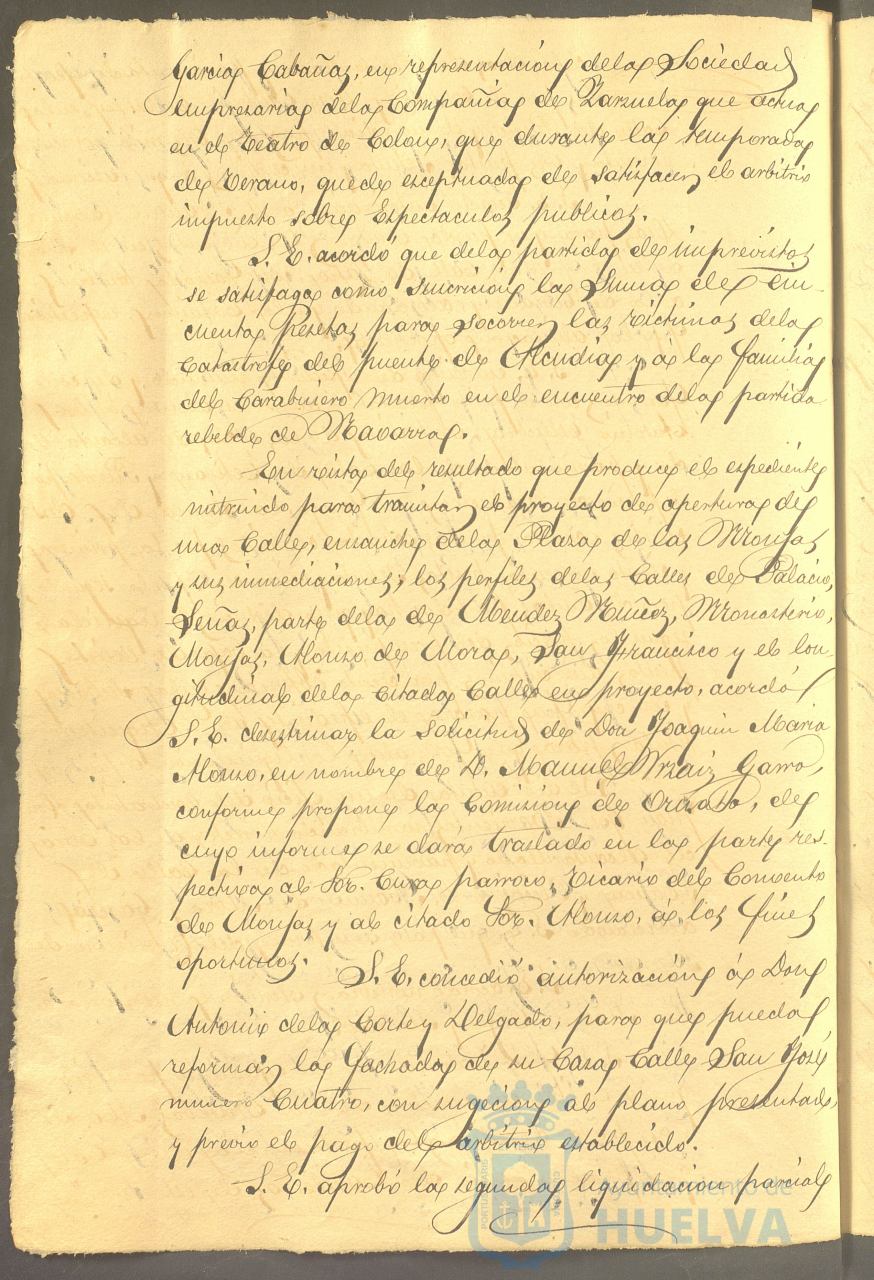 Garcia Cabañas, en representación de la Sociedad
empresaria de la Compañia de Zarzuela que actua
en el Teatro de Colon, que durante la temporada
de Verano, quede esceptuada de satisfacer el arbitrio
impuesto sobre Espectaculos publicos.
S. E. acordó que de la partida de imprevistos
se satisfaga como suscrición la Suma de Cin-
cuenta Pesetas para socorrer las victimas de la
Catastrofe del puente de Alcudia y á la familia
del Carabinero muerto en el encuentro de la partida
rebelde de Navarra.
En vista del resultado que produce el espediente
instruido para tramitar el proyecto de apertura de
una Calle, ensanche de la Plaza de las Monjas
y sus inmediaciones, los perfiles de las Calles de Palacio,
Señas, parte de la de Mendez Nuñez, Monasterio,
Monjas, Alonso de Mora, San Francisco y el lon-
gitudinal de la citada Calle en proyecto, acordó
S. E. desestimar la solicitud de Don Joaquin Maria
Alonso, en nombre de D. Manuel Garro,
conforme propone la Comision de Ornato, de
cuyo informe se dará traslado en la parte res-
pectiva al Sor. Cura parroco, Vicario del Convento
de Monjas y al citado Sor. Alonso, á los fines
oportunos.
S. E. concedió autorización á Don
Antonio de la Corte y Delgado, para que pueda
reformar la fachada de su Casa Calle San José
numero Cuatro, con sugecion al plano presentado,
y previo el pago del arbitrio establecido.
S. E. aprobó la segunda liquidacion parcial
Ayuntamiento de
HUELVA